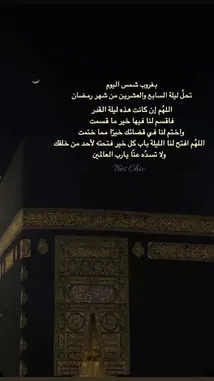 بغروب شمس اليوم
تحلّ ليلة السابع والعشرين من شهر رمضان
اللهُم إن كانت هذه ليلة القدر
فاقسم لنا فيها خير ما قسمت
واختم لنا في قضائك خيرًا مما ختمت
اللهُم افتح لنا الليلة باب كل خير فتحته لأحد من خلقك
ولا تسدّه عنّا يارب العالمين